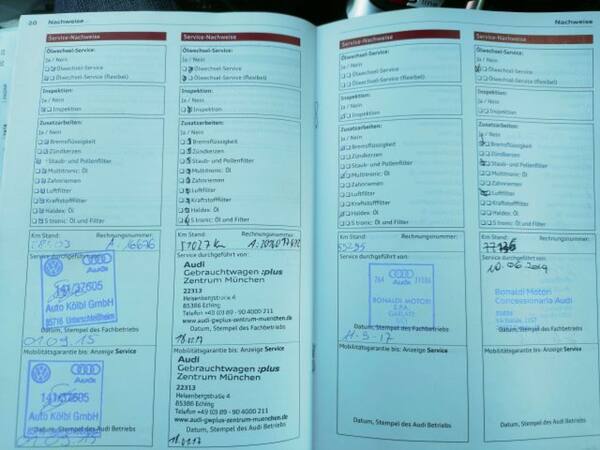 20 Nachweise
Service-Nachweise
Ölwechsel-Service:
Ja / Nein
Ölwechsel-Service
Ölwechsel-Service (flexibel)
Inspektion:
Ja / Nein
Inspektion
Zusatzarbeiten:
Ja / Nein
Bremsflüssigkeit
Zündkerzen
Staub- und Pollenfilter
Multitronic: Öl
Zahnriemen
Luftfilter
Kraftstofffilter
Haldex: Öl
S tronic: Öl und Filter
Km Stand: Rechnungsnummer:
A-16676
Service durchgeführt von:
Audi
141/37605
Auto Kölbl GmbH
85716 Unterschleißheim
Datum, Stempel des Fachbetriebs
01.09.15
Mobilitätsgarantie bis: Anzeige Service
Audi
141/37605
Auto Kölbl GmbH
Datum, Stempel des Audi Betriebs
Service-Nachweise
Ölwechsel-Service:
Ja / Nein
Ölwechsel-Service
Ölwechsel-Service (flexibel)
Inspektion:
Ja / Nein
Inspektion
Zusatzarbeiten:
Ja / Nein
Bremsflüssigkeit
Zündkerzen
Staub- und Pollenfilter
Multitronic: Öl
Zahnriemen
Luftfilter
Kraftstofffilter
Haldex: Öl
S tronic: Öl und Filter
Km Stand: Rechnungsnummer:
51027 km
Service durchgeführt von:
Audi
Gebrauchtwagen :plus
Zentrum München
22313
Heisenbergstraße 4
85386 Eching
Telefon +49 (0) 89 - 90 4000 211
www.audi-gwplus-zentrum-muenchen.de
Datum, Stempel des Fachbetriebs
Mobilitätsgarantie bis: Anzeige Service
Audi
Gebrauchtwagen :plus
Zentrum München
22313
Heisenbergstraße 4
85386 Eching
Telefon +49 (0) 89 - 90 4000 211
www.audi-gwplus-zentrum-muenchen.de
Datum, Stempel des Audi Betriebs
Nachweise
Service-Nachweise
Ölwechsel-Service:
Ja / Nein
Ölwechsel-Service
Ölwechsel-Service (flexibel)
Inspektion:
Ja / Nein
Inspektion
Zusatzarbeiten:
Ja / Nein
Bremsflüssigkeit
Zündkerzen
Staub- und Pollenfilter
Multitronic: Öl
Zahnriemen
Luftfilter
Kraftstofffilter
Haldex: Öl
S tronic: Öl und Filter
Km Stand: Rechnungsnummer:
Service durchgeführt von:
Audi
BONALDI MOTORI
S.P.A.
Datum, Stempel des Fachbetriebs
Mobilitätsgarantie bis: Anzeige Service
Datum, Stempel des Audi Betriebs
Service-Nachweise
Ölwechsel-Service:
Ja / Nein
Ölwechsel-Service
Ölwechsel-Service (flexibel)
Inspektion:
Ja / Nein
Inspektion
Zusatzarbeiten:
Ja / Nein
Bremsflüssigkeit
Zündkerzen
Staub- und Pollenfilter
Multitronic: Öl
Zahnriemen
Luftfilter
Kraftstofffilter
Haldex: Öl
S tronic: Öl und Filter
Km Stand: Rechnungsnummer:
Service durchgeführt von:
10.06.2019
Bonaldi Motori
Concessionaria Audi
Datum, Stempel des Fachbetriebs
Mobilitätsgarantie bis: Anzeige Service
Datum, Stempel des Audi Betriebs